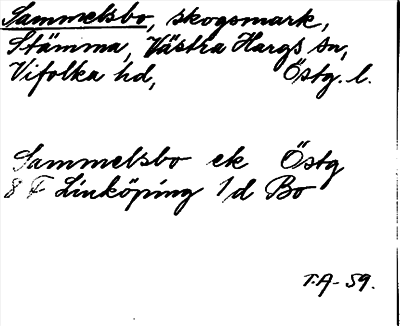 Sammelsbo, skogsmark,
Stämma, Västra Hargs sn,
Vifolka hd, Östg. l.
Sammelsbo ek Östg
8 F Linköping 1d Bo
T.A- 59.